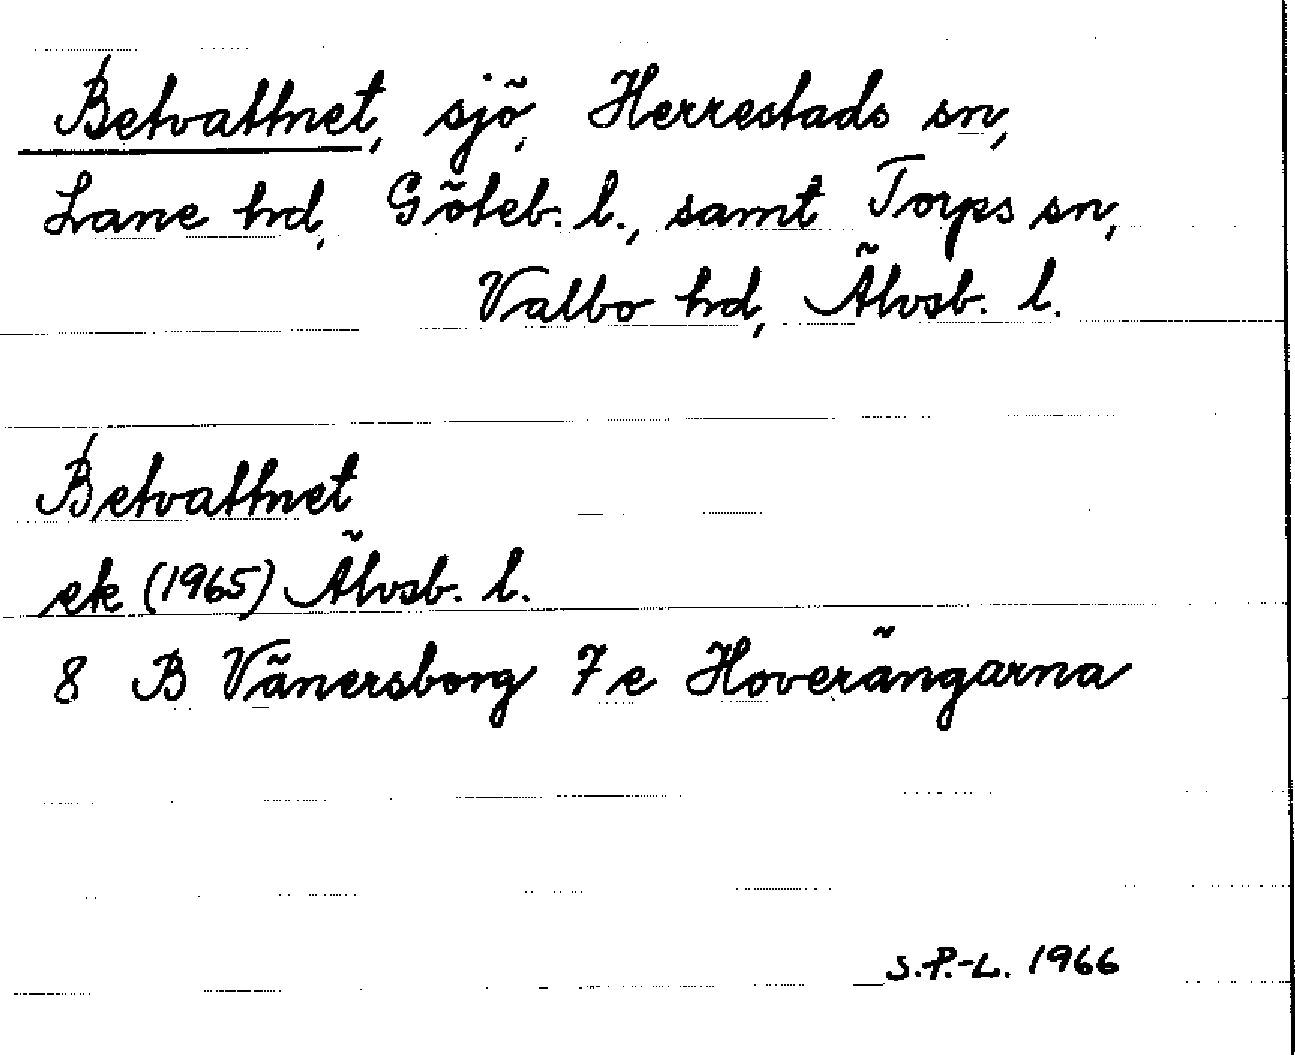 Betvattnet, sjö, Herrestads sn,
Lane hd, Göteb. l., samt Torps sn,
Valbo hd, Älvsb. l.
Betvattnet
ek (1965) Älvsb. l.
8 B Vänersborg 7e Hoverängarna
S.P.-L. 1966